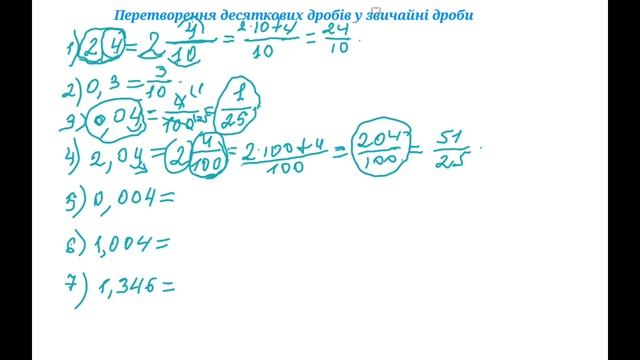 Перетворення десяткових дробів у звичайні дроби
1) 2,4 = 2 4/10 = 2·10+4/10 = 24/10.
2) 0,3 = 3/10.
3) 0,04 = 4/100 = 1/25
4) 2,04 = 2 4/100 = 2·100+4/100 = 204/100 = 51/25.
5) 0,004 =
6) 1,004 =
7) 1,346 =